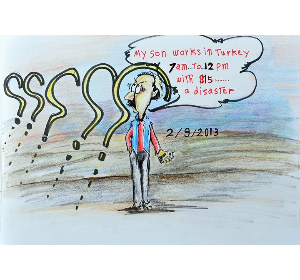 My son works in Turkey
7am..To.12 pm
with $15......
a disaster
2/9/2013